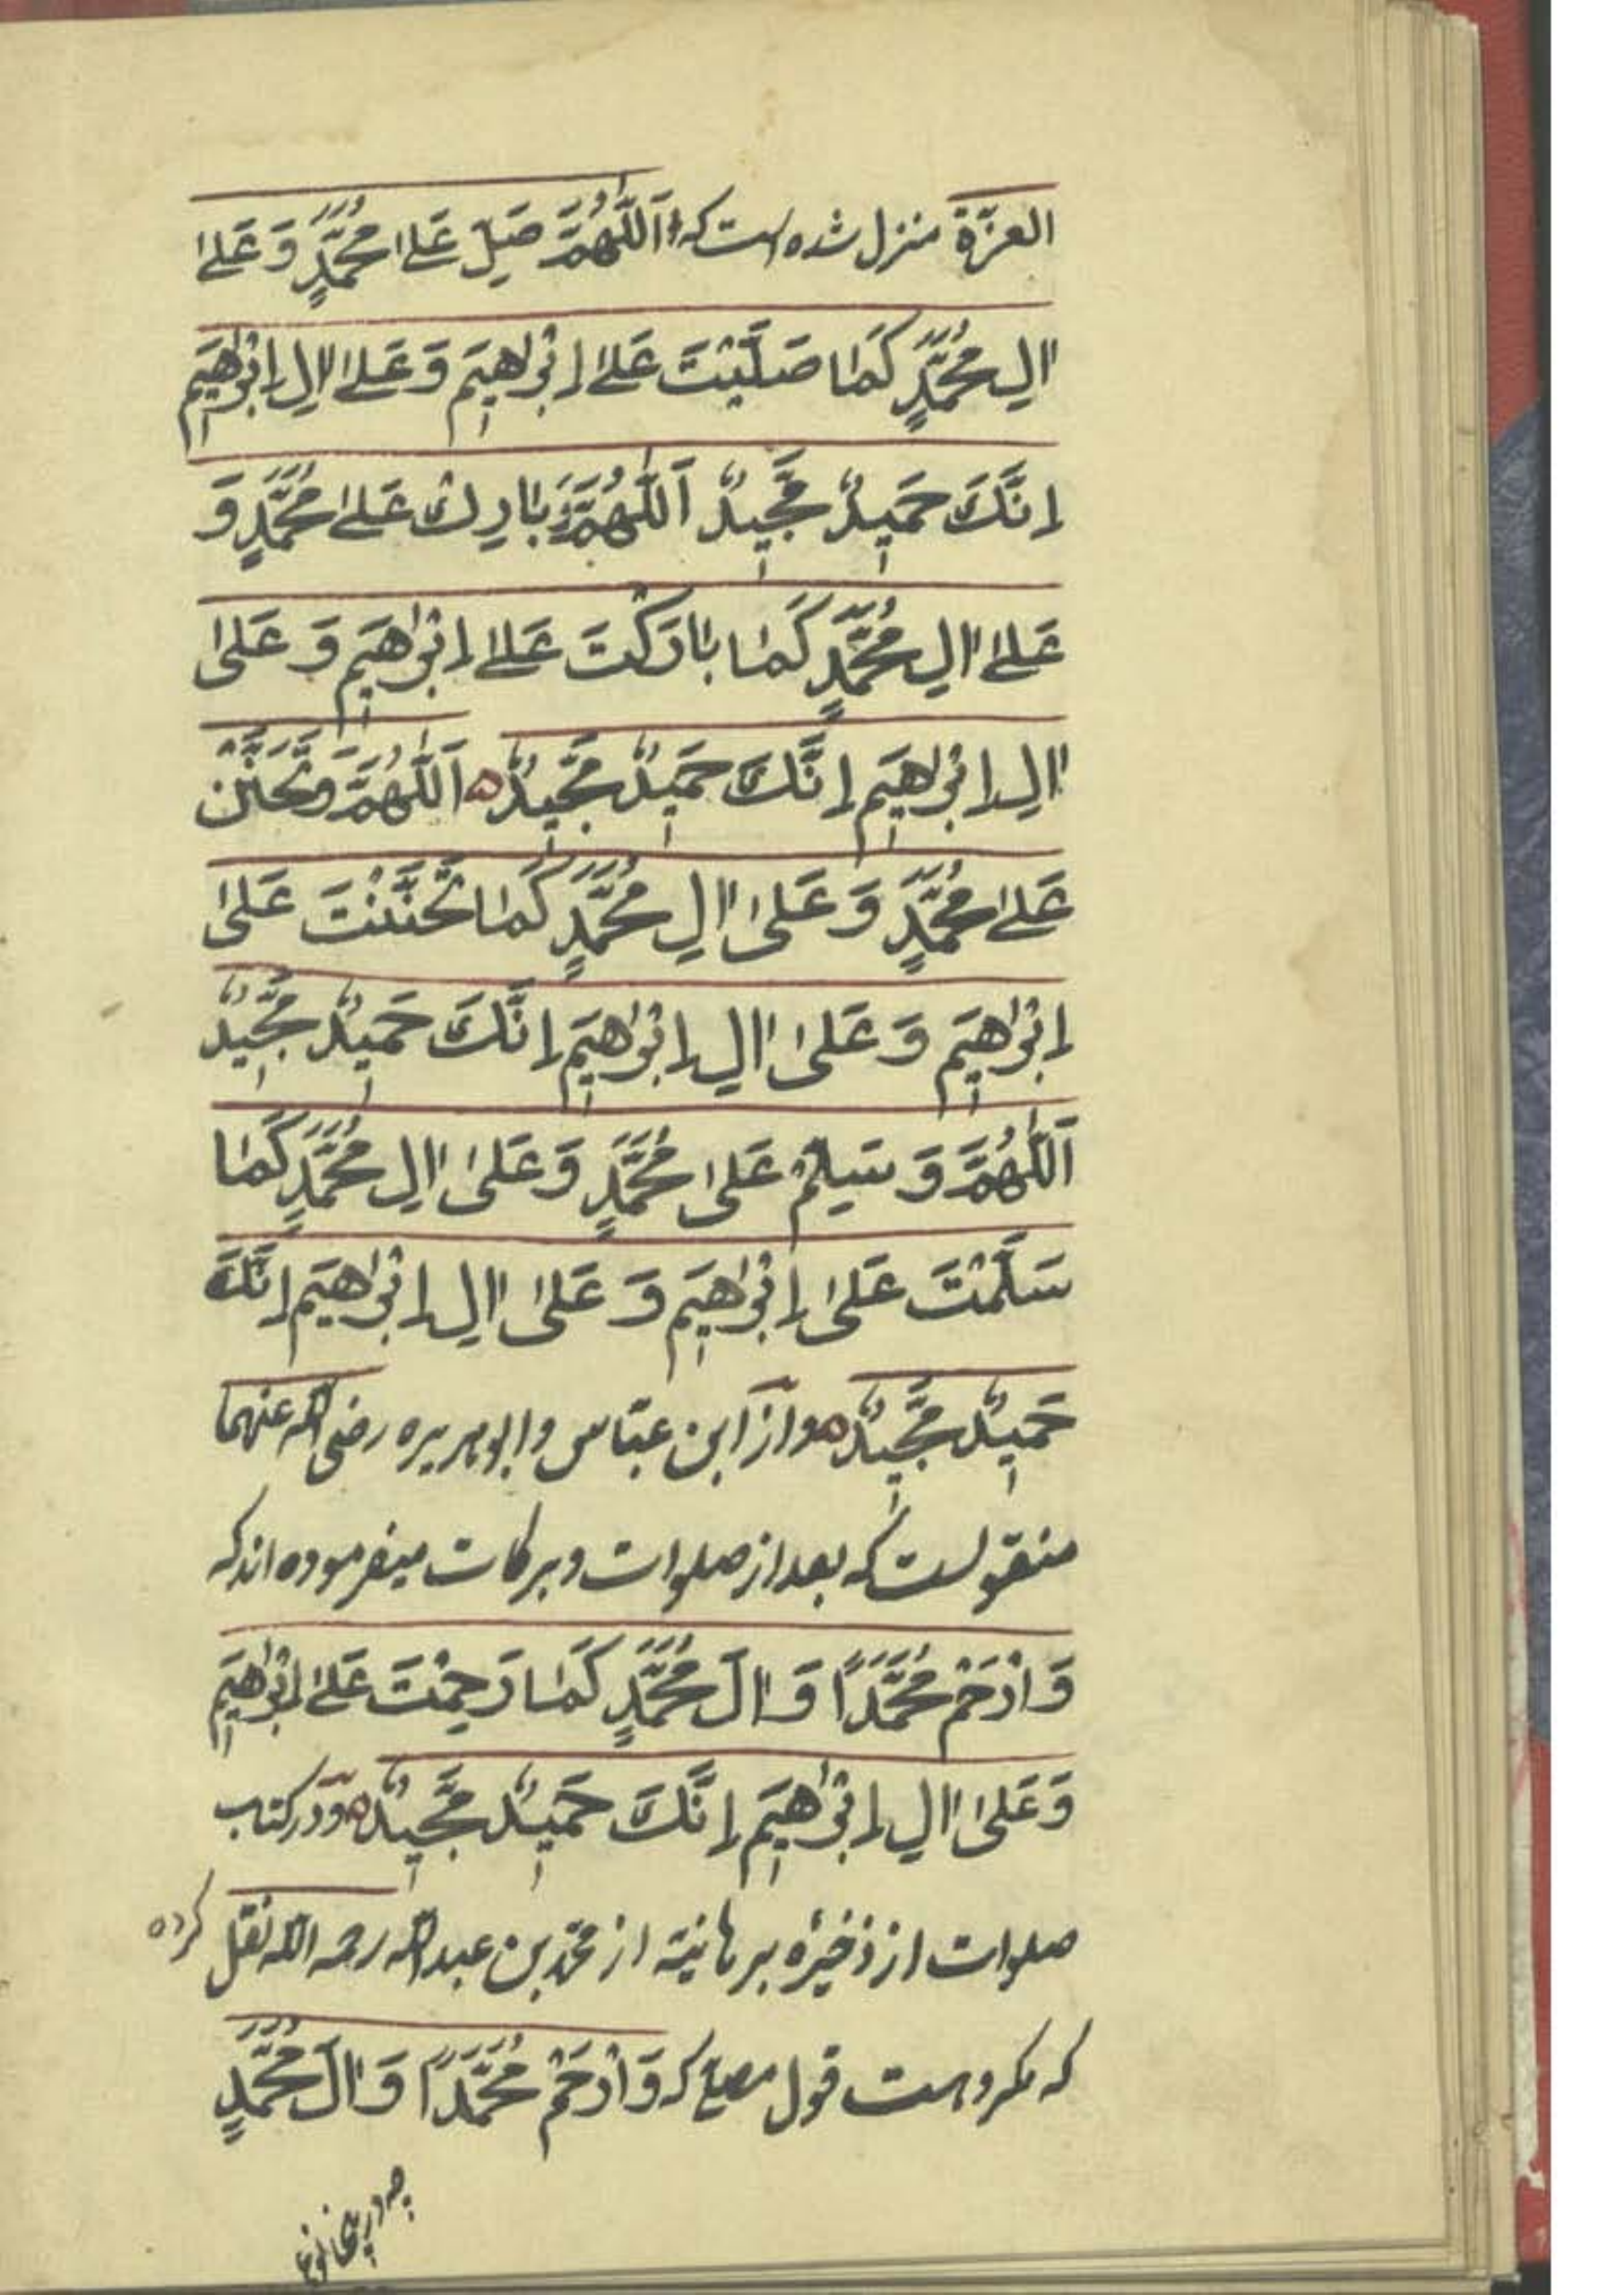 العزّة منزل شده است که اَللّٰهُمَّ صَلِّ عَلىٰ مُحَمَّدٍ وَ عَلىٰ
اٰلِ مُحَمَّدٍ كَمٰا صَلَّيْتَ عَلىٰ اِبْرٰاهِيمَ وَ عَلىٰ اٰلِ اِبْرٰاهِيمَ
اِنَّكَ حَمِيدٌ مَّجِيدٌ اَللّٰهُمَّ بٰارِكْ عَلىٰ مُحَمَّدٍ وَ
عَلىٰ اٰلِ مُحَمَّدٍ كَمٰا بٰارَكْتَ عَلىٰ اِبْرٰاهِيمَ وَ عَلىٰ
اٰلِ اِبْرٰاهِيمَ اِنَّكَ حَمِيدٌ مَّجِيدٌ ه اَللّٰهُمَّ وَتَحَنَّنْ
عَلىٰ مُحَمَّدٍ وَ عَلىٰ اٰلِ مُحَمَّدٍ كَمٰا تَحَنَّنْتَ عَلىٰ
اِبْرٰاهِيمَ وَ عَلىٰ اٰلِ اِبْرٰاهِيمَ اِنَّكَ حَمِيدٌ مَّجِيدٌ
اَللّٰهُمَّ وَ سَلِّمْ عَلىٰ مُحَمَّدٍ وَ عَلىٰ اٰلِ مُحَمَّدٍ كَمٰا
سَلَّمْتَ عَلىٰ اِبْرٰاهِيمَ وَ عَلىٰ اٰلِ اِبْرٰاهِيمَ اِنَّكَ
حَمِيدٌ مَّجِيدٌ ه و از ابن عبّاس و ابو هریره رضی الله عنهما
منقولست که بعد از صلوات و برکات میفرموده اند که
وَ ارْحَمْ مُحَمَّدًا وَ اٰلَ مُحَمَّدٍ كَمٰا رَحِمْتَ عَلىٰ اِبْرٰاهِيمَ
وَ عَلىٰ اٰلِ اِبْرٰاهِيمَ اِنَّكَ حَمِيدٌ مَّجِيدٌ ه و در کتاب
صلوات از ذخیرهٔ برهانیّه از محمّد بن عبد الله رحمه الله نقل کرده
که مکروهست قول مصلّی که وَ ارْحَمْ مُحَمَّدًا وَ اٰلَ مُحَمَّدٍ
چه در